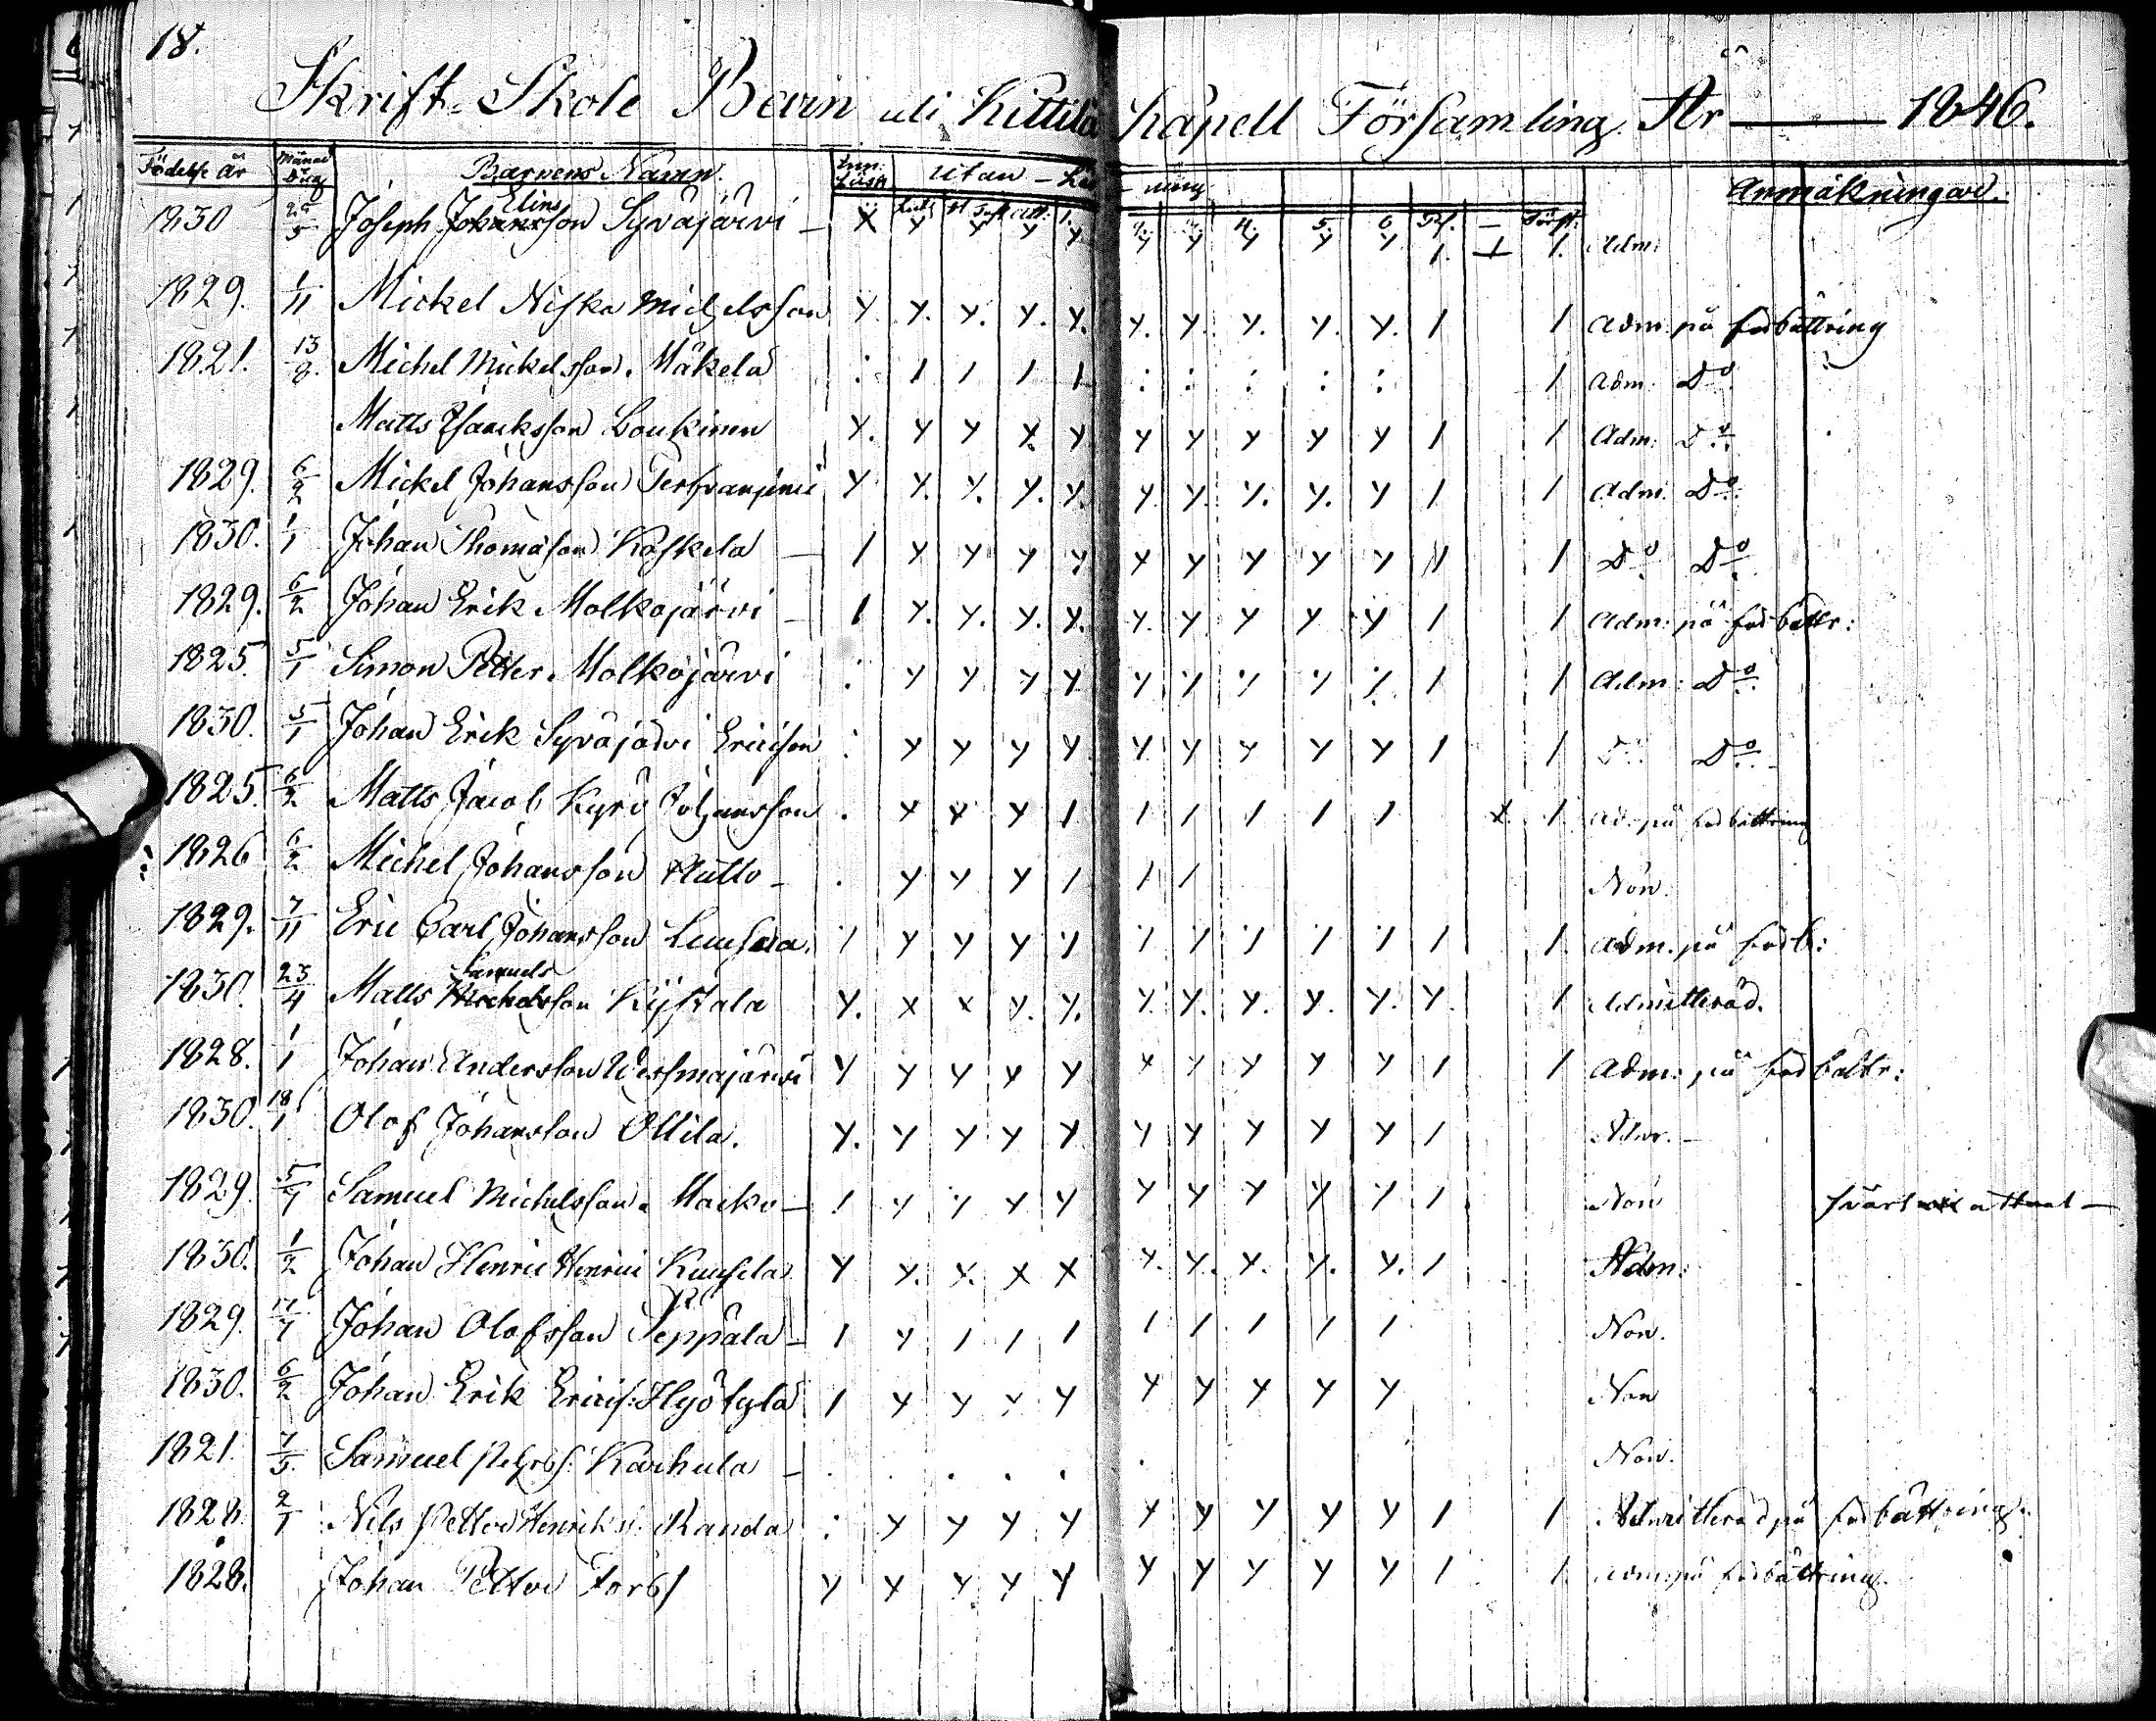 18.
Skrift-Skole Barn uti Kittilä Kapell Församling År 1846.
Födelse År Månad Dag Barnens Namn. Inn: Läsn Utan-Läs-ning Anmäkningar.
4. 5. 6.
1830 25/5 Joseph Johansson Elins Syväjärvi — X Y Y Y Y Y Y Y Y Y 1. 1. Adm:
1829. 1/11 Mickel Niska Michelsson Y. Y. Y. Y. Y. Y. Y. Y. Y. Y. 1 1 Adm: på förbättring
1821. 13/8. Michel Mickelsson. Mäkelä : 1 1 1 1 : : : : : 1 Adm: Do
Matts Isaacksson Loukinen Y. Y Y Y Y Y Y Y Y Y 1 1 Adm: Do
1829. 6/2 Mickel Johansson Y Y. Y. Y. Y. Y Y. Y. Y. Y 1 1 Adm. Do
1830. 1/1 Johan Thomasson Koskela — 1 Y Y Y Y Y Y Y Y Y 1 1 Do Do
1829. 6/2 Johan Erik Molkojärvi — 1 Y. Y. Y. Y. Y. Y. Y Y Y 1 1 Adm: på förbättr:
1825. 5/1 Simon Petter. Molkojärvi : Y Y Y Y Y Y Y Y Y 1 1 Adm: Do
1830. 5/1 Johan Erik Syväjärvi Ericsson : Y Y Y Y Y Y Y Y Y 1 1 Do Do
1825. 6/2 Matts Jacob Kyrö Johansson . Y Y Y 1 1 1 1 1 1 X 1 Ad. på förbättring
1826 6/2 Michel Johansson Hutto — . Y Y Y 1 1 1 Non.
1829. 7/11 Eric Carl Johansson Luusua. 1 Adm. på förb:
1830. 23/4 Matts Michelsson Samuels Kijstala Y. X X Y. Y. Y. Y. Y. Y. Y. Y. 1 Admitterad.
1828. 1/1 Johan Andersson Wesmajärvi Y Y Y Y Y Y Y Y Y Y 1 1 Adm: på förbättr:
1830. 18/1 Olof Johansson Ollila. Y. Y Y Y Y Y Y Y Y Y 1 Adm. —
1829. 5/7 Samuel Michelsson. — 1 Y Y Y Y Y Y Y Y Y 1 Non svårt
1830. 1/2 Johan Henric Henrics Kuusela Y Y. Y. X X Y. Y. Y. Y. Y. 1 Adm:
1829. Johan Olofsson Seppälä — 1 Y 1 1 1 1 1 1 1 1 Non.
1830. 6/2 Johan Erik Ericss: Hyötylä 1 Y Y Y Y Y Y Y Y Y Non
1821. 7/5. Samuel Pehrss: Karhula — . . . . . . Non.
1828. 2/1 Nils Petter Henrikss: Randa : Y Y Y Y Y Y Y Y Y 1 1 Admitterad på förbättring.
1828. Johan Petter Forss Y Y Y Y Y Y Y Y Y Y 1 1 Adm: på förbättring.